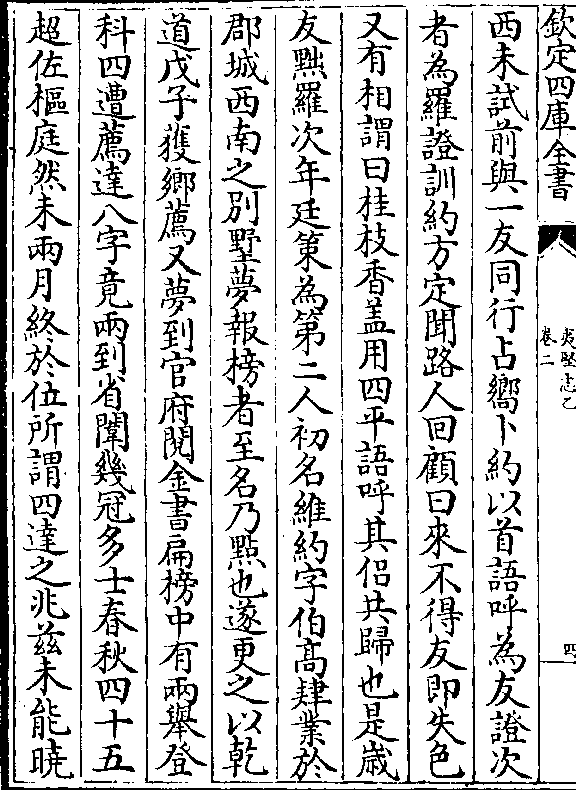 欽定四庫全書
夷堅志乙
卷二
四
西未試前與一友同行占嚮卜約以首語呼為友證次
者為羅證訓約方定聞路人回顧曰來不得友即失色
又有相謂曰桂枝香盖用四平語呼其侣共歸也是歳
友黜羅次年廷策為第二人初名維約字伯髙肄業於
郡城西南之别墅夢報榜者至名乃點也遂更之以乾
道戊子獲鄉薦又夢到官府閲金書扁榜中有兩舉登
科四遭薦達八字竟兩到省闈幾冠多士春秋四十五
超佐樞庭然未兩月終於位所謂四達之兆兹未能暁